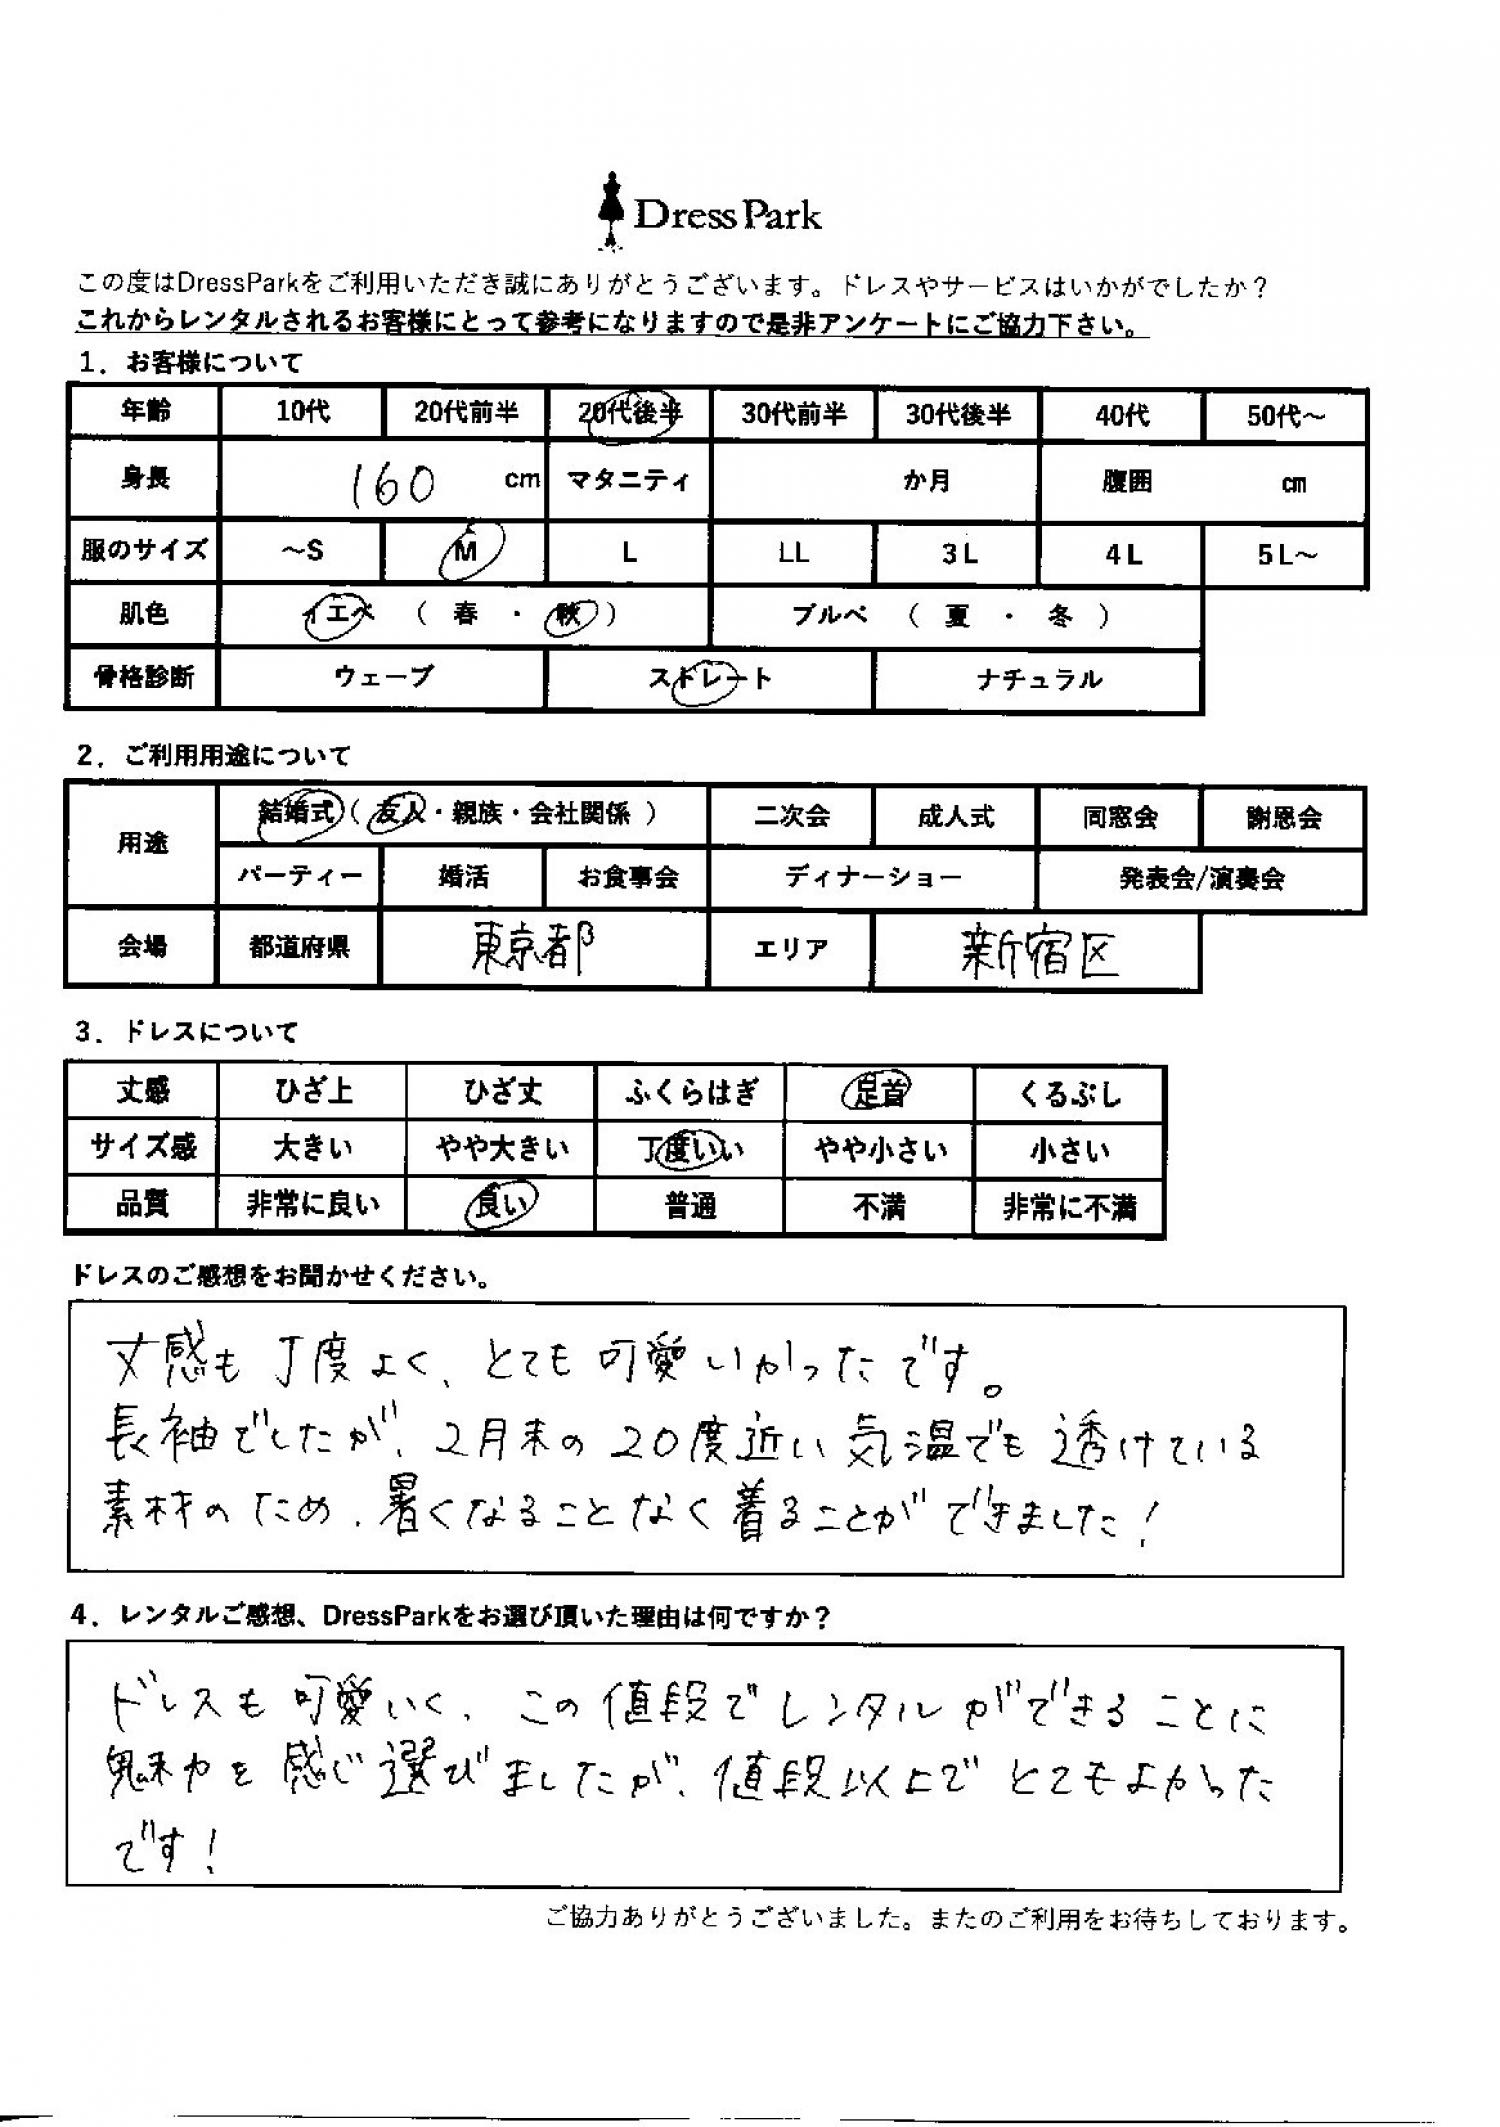 DressPark
この度はDressParkをご利用いただき誠にありがとうございます。ドレスやサービスはいかがでしたか？
これからレンタルされるお客様にとって参考になりますので是非アンケートにご協力下さい。
1．お客様について
年齢 10代 20代前半 20代後半 30代前半 30代後半 40代 50代～
身長 160 cm マタニティ か月 腹囲 cm
服のサイズ ～S M L LL 3L 4L 5L～
肌色 イエベ （ 春 ・ 秋 ） ブルベ （ 夏 ・ 冬 ）
骨格診断 ウェーブ ストレート ナチュラル
2．ご利用用途について
用途 結婚式（ 友人・親族・会社関係 ） 二次会 成人式 同窓会 謝恩会
パーティー 婚活 お食事会 ディナーショー 発表会/演奏会
会場 都道府県 東京都 エリア 新宿区
3．ドレスについて
丈感 ひざ上 ひざ丈 ふくらはぎ 足首 くるぶし
サイズ感 大きい やや大きい 丁度いい やや小さい 小さい
品質 非常に良い 良い 普通 不満 非常に不満
ドレスのご感想をお聞かせください。
丈感も丁度よく、とても可愛いかったです。
長袖でしたが、2月末の20度近い気温でも透けている
素材のため、暑くなることなく着ることができました！
4．レンタルご感想、DressParkをお選び頂いた理由は何ですか？
ドレスも可愛いく、この値段でレンタルができることに
魅力を感じ選びましたが、値段以上でとてもよかった
です！
ご協力ありがとうございました。またのご利用をお待ちしております。